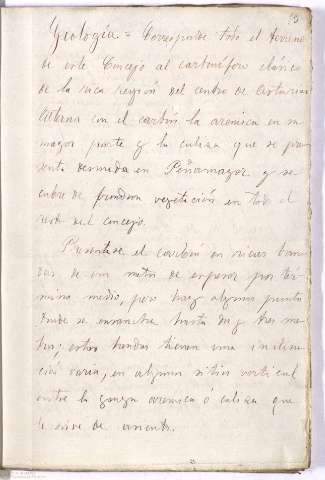 Geología = Corresponde todo el terreno
de este Concejo al carbonífero clásico
de la rica región del centro de Asturias
Alterna con el carbón la arenisca en su
mayor parte y la caliza que se pre
senta desnuda en Peñamayor y se
cubre de frondosa vegetación en todo el
resto del concejo.
Preséntase el carbón en ricas ban
das de un metro de espesor por tér
mino medio, pero hay algunos puntos
donde se ensancha hasta dos y tres me
tros; estas bandas tienen una inclina
ción varia, en algunos sitios vertical
entre la ganga arenisca ó caliza que
le sirve de asiento.